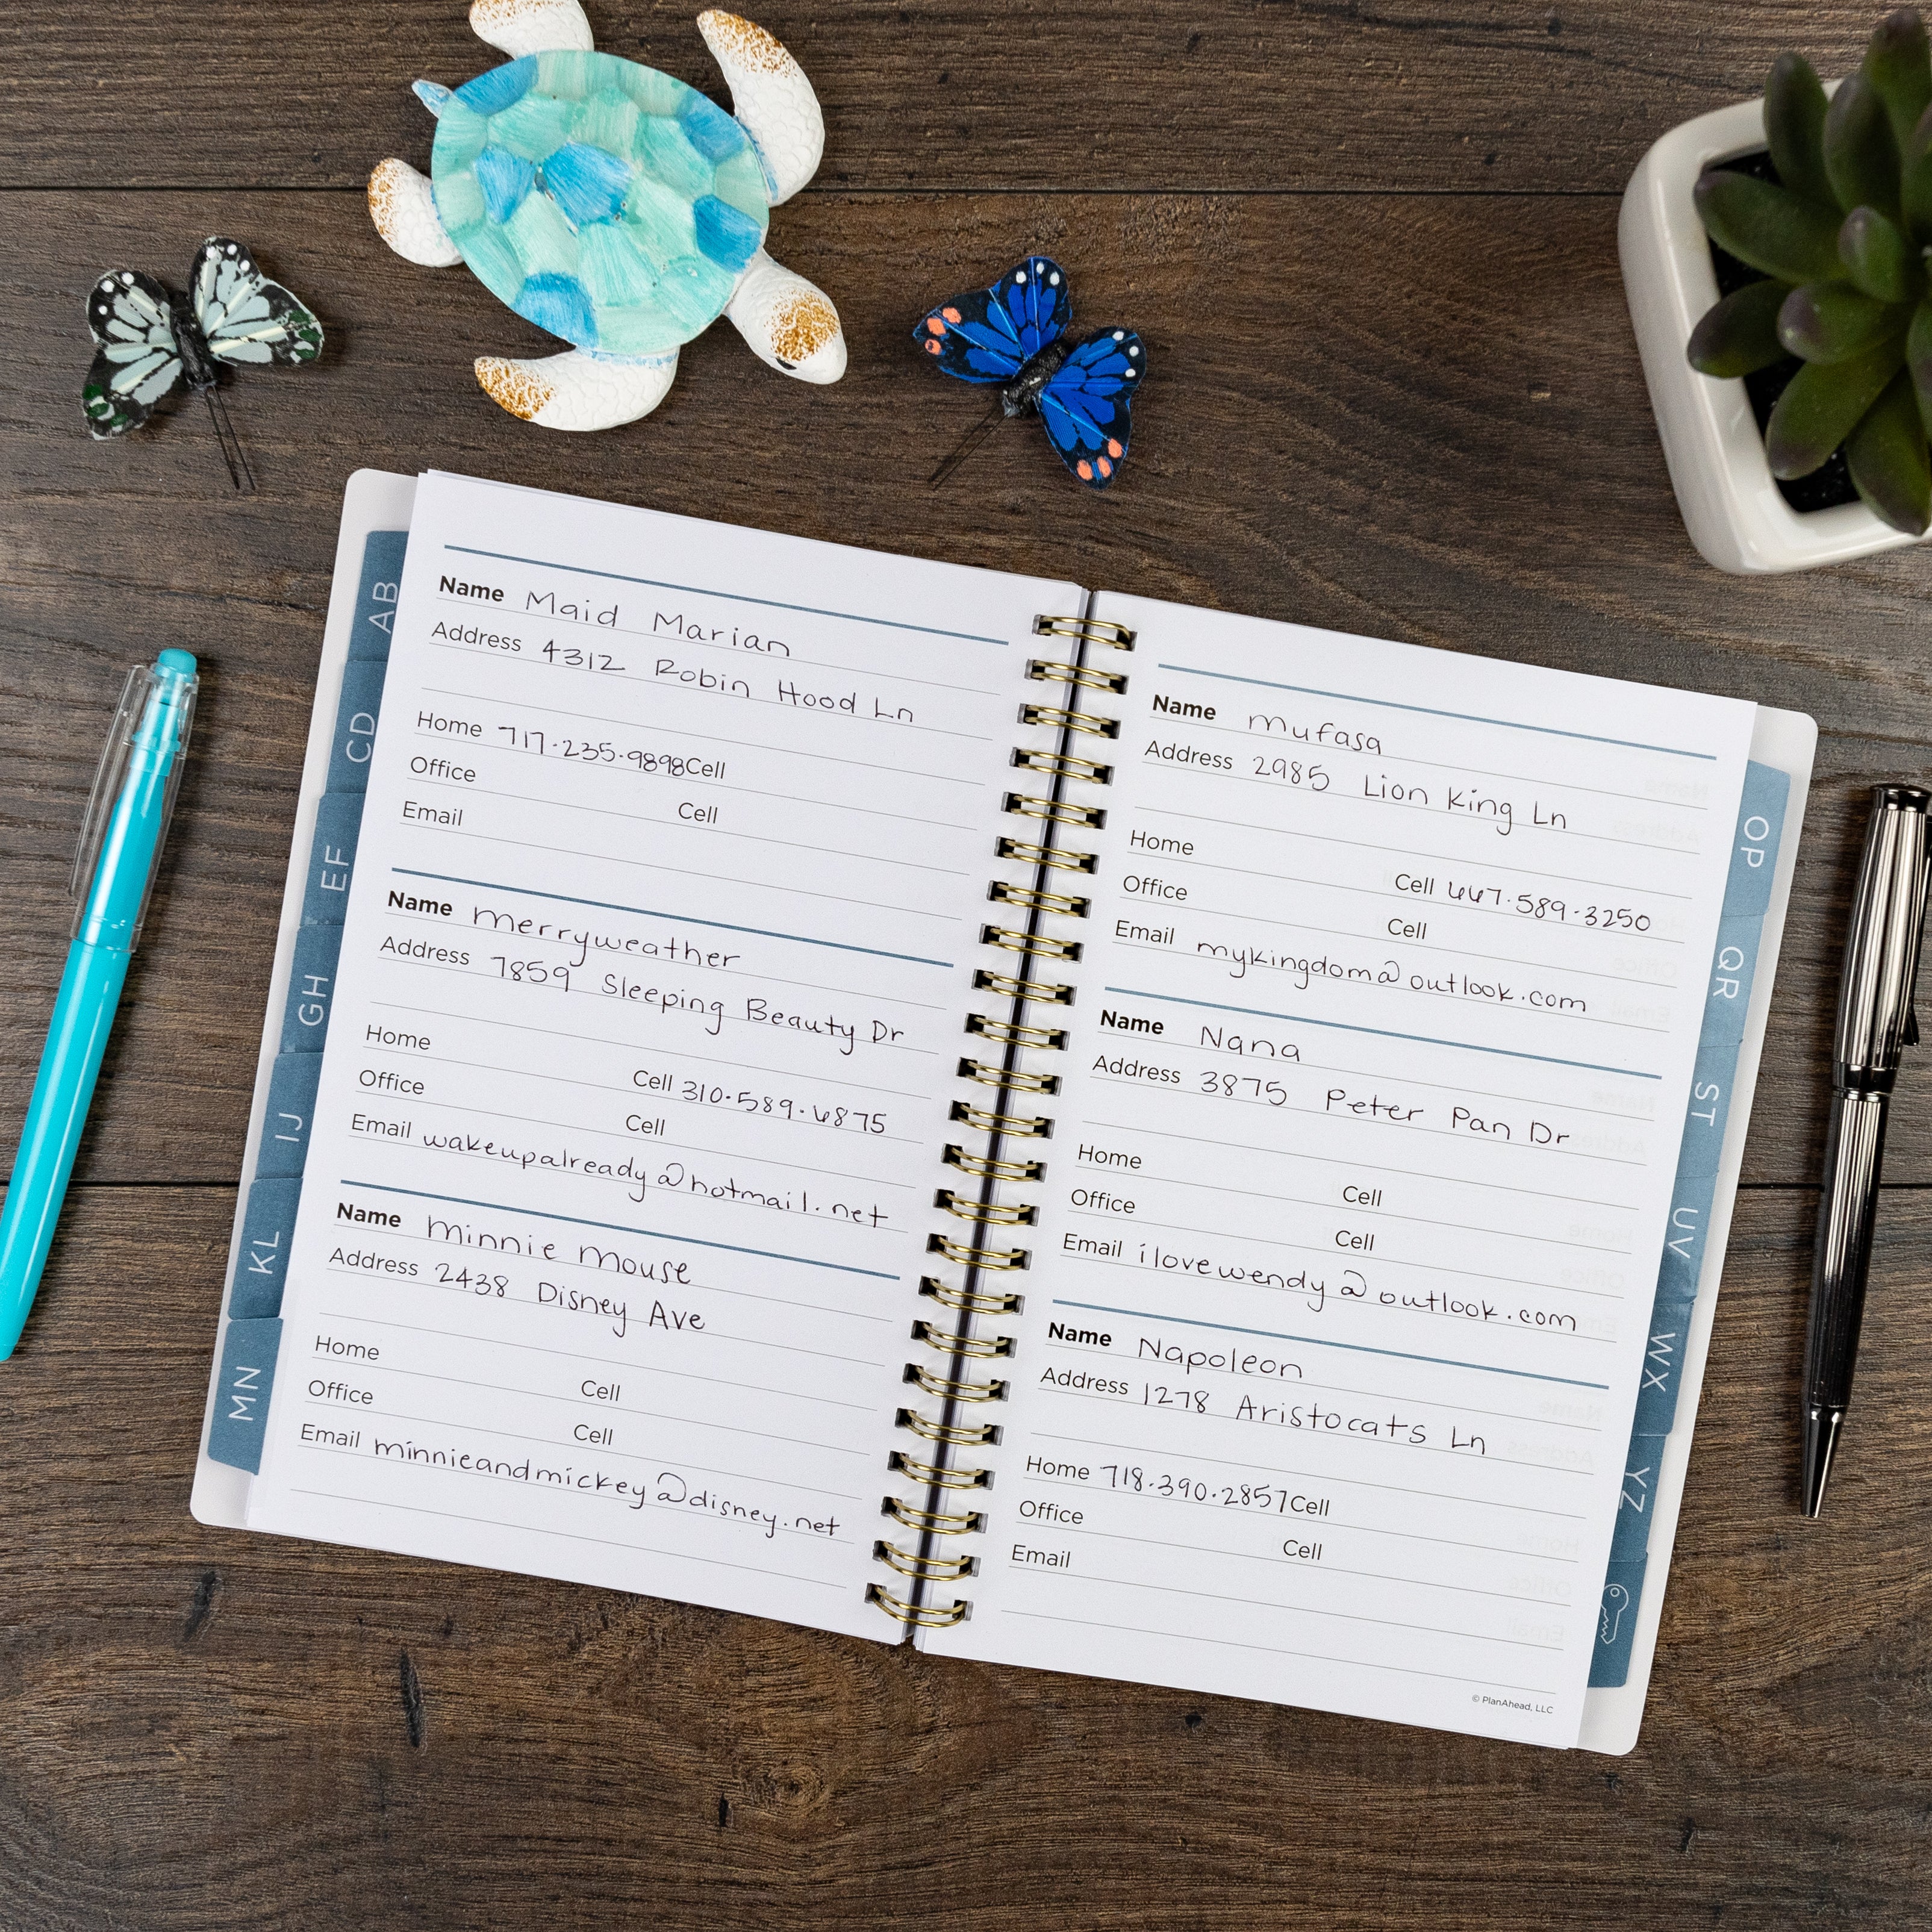 AB
CD
EF
GH
IJ
KL
MN
Name Maid Marian
Address 4312 Robin Hood Ln
Home 717.235.9898 Cell
Office
Cell
Email
Name Merryweather
Address 7859 Sleeping Beauty Dr
Home
Cell 310.589.6875
Office
Cell
Email wakeupalready@hotmail.net
Name Minnie Mouse
Address 2438 Disney Ave
Home
Cell
Office
Cell
Email minnieandmickey@disney.net
Name Mufasa
Address 2985 Lion King Ln
Home
Cell 667.589.3250
Office
Cell
Email mykingdom@outlook.com
Name Nana
Address 3875 Peter Pan Dr
Home
Cell
Office
Cell
Email ilovewendy@outlook.com
Name Napoleon
Address 1278 Aristocats Ln
Home 718.390.2857 Cell
Office
Cell
Email
© PlanAhead, LLC
OP
QR
ST
UV
WX
YZ